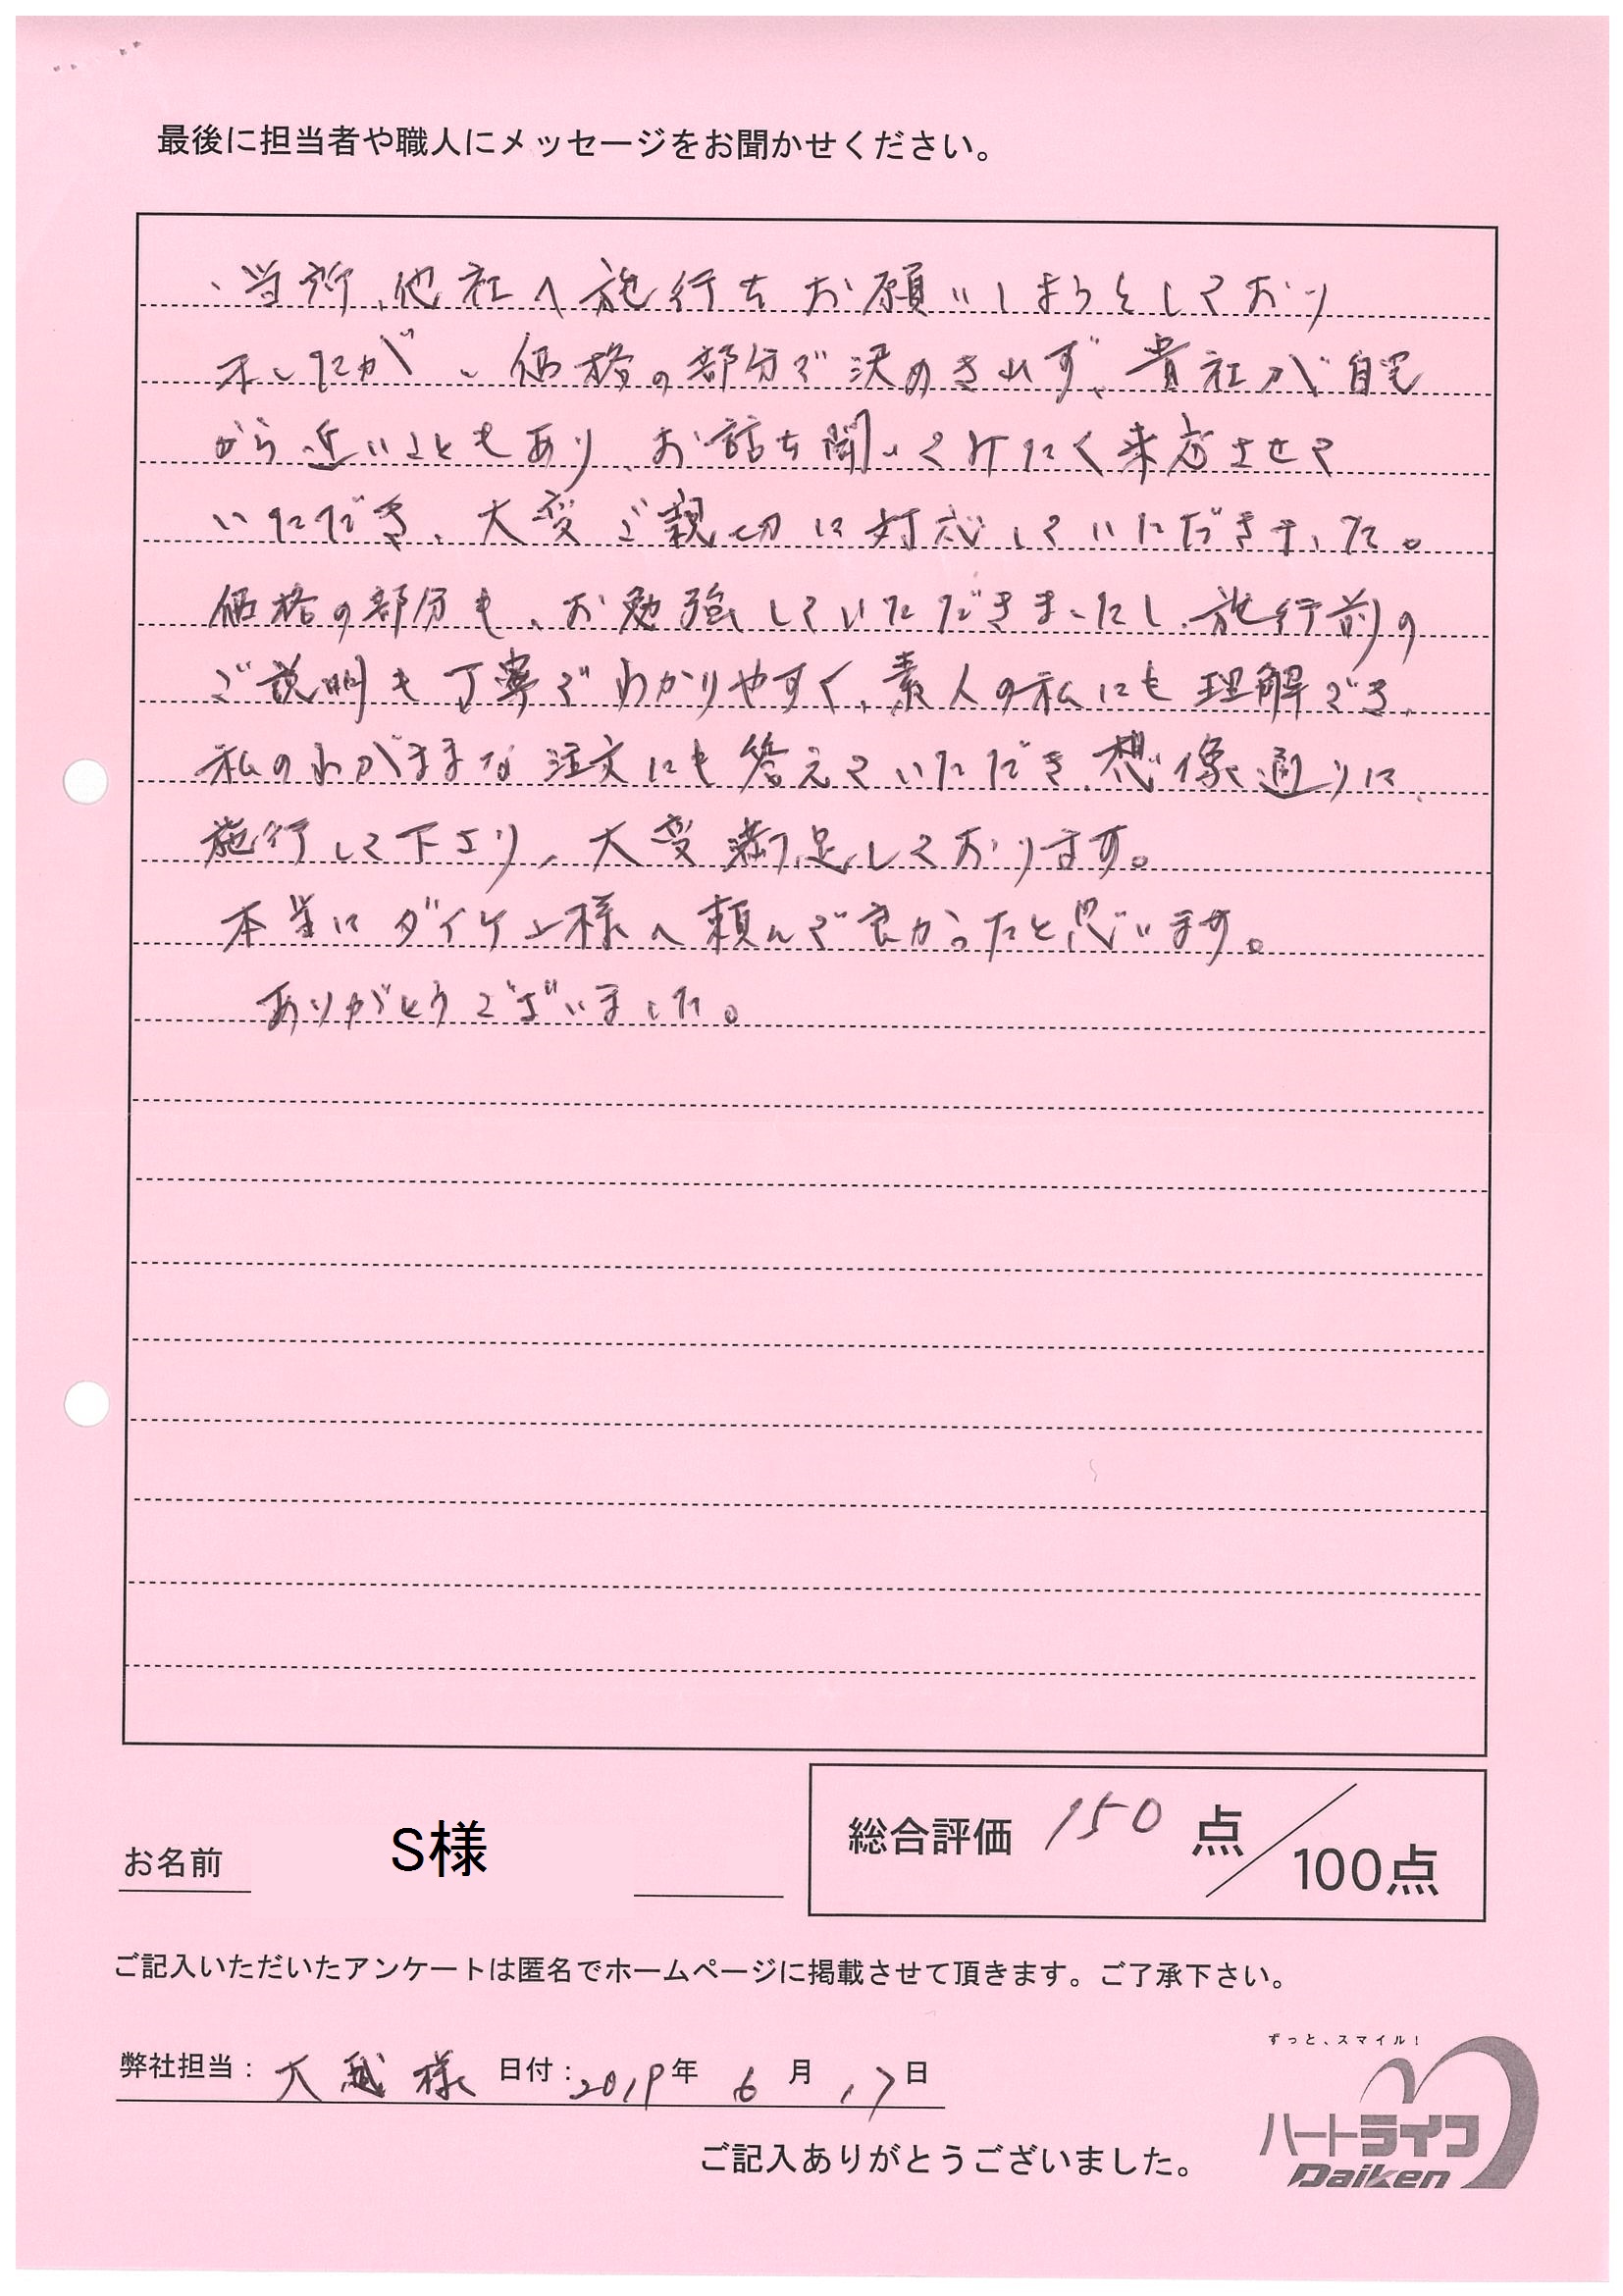 最後に担当者や職人にメッセージをお聞かせください。
、当所、他社へ施行をお願いしようとしており
ましたが、価格の部分で決めきれず、貴社が自宅
から近いこともあり、お話を聞いてみたく来店させて
いただき、大変ご親切に対応していただきました。
価格の部分も、お勉強していただきましたし、施行前の
ご説明も丁寧でわかりやすく、素人の私にも理解でき、
私のわがままな注文にも答えていただき、想像通りに、
施行して下さり、大変満足しております。
本当にダイケン様へ頼んで良かったと思います。
ありがとうございました。
お名前 S様
総合評価 150点/100点
ご記入いただいたアンケートは匿名でホームページに掲載させて頂きます。ご了承下さい。
弊社担当:大越様 日付:2019年 6月 17日
ずっと、スマイル!
ハートライフ
Daiken
ご記入ありがとうございました。